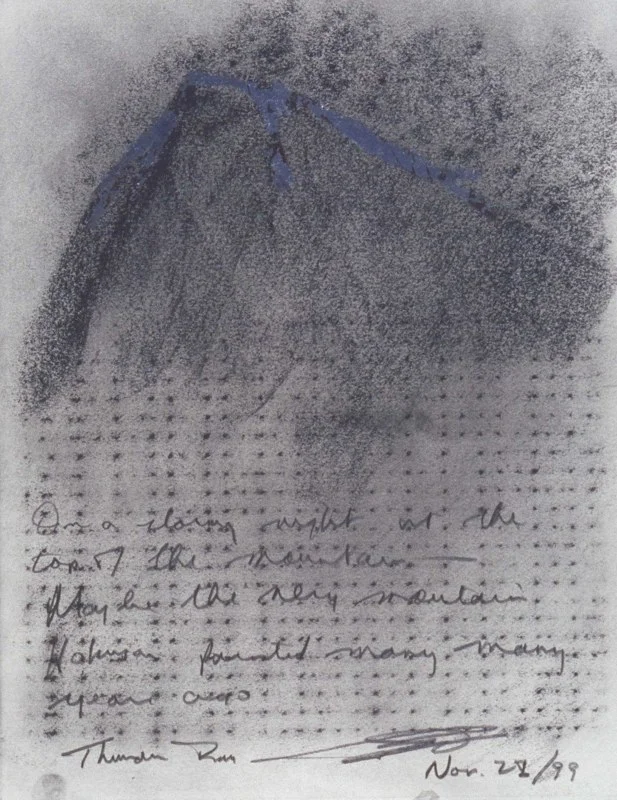 On a night at the
top of the mountain —
Maybe the very mountain
Hokusai painted many many
years ago
Thunder Nov. /99